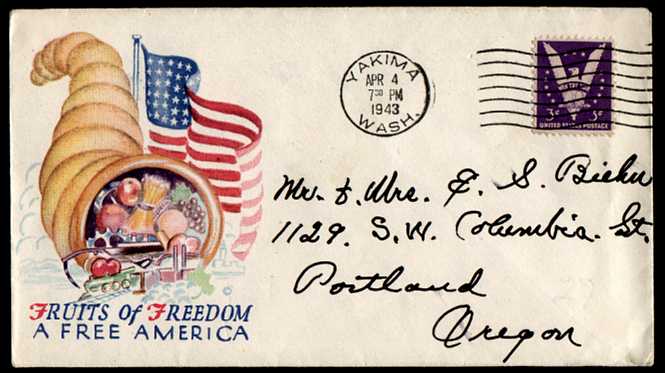 FRUITS of FREEDOM
A FREE AMERICA
YAKIMA
APR 4
7 30 PM
1943
WASH.
WIN THE WAR
3¢ 3¢
UNITED STATES POSTAGE
Mr. & Mrs. E. S. Biehn
1129. S.W. Columbia. St.
Portland
Oregon